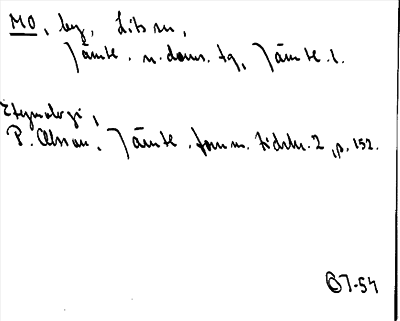 MO, by, Lits sn,
Jämtl. n. doms. tg, Jämtl. l.
Etymologi,
P. Olsson, Jämtl. fornm. tidskr. 2, p. 152.
BJ-54